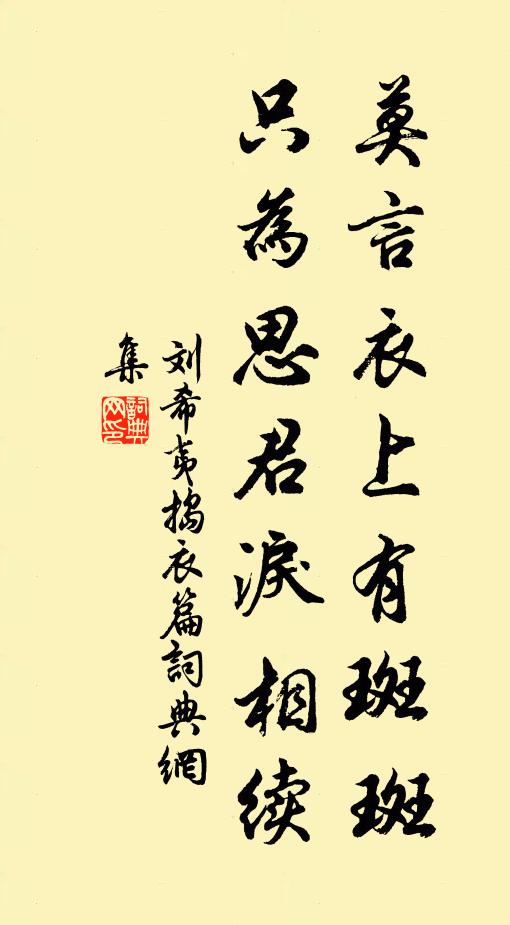 莫言衣上有斑斑
只為思君淚相续
刘希夷搗衣篇詞典網
集
詞典网印